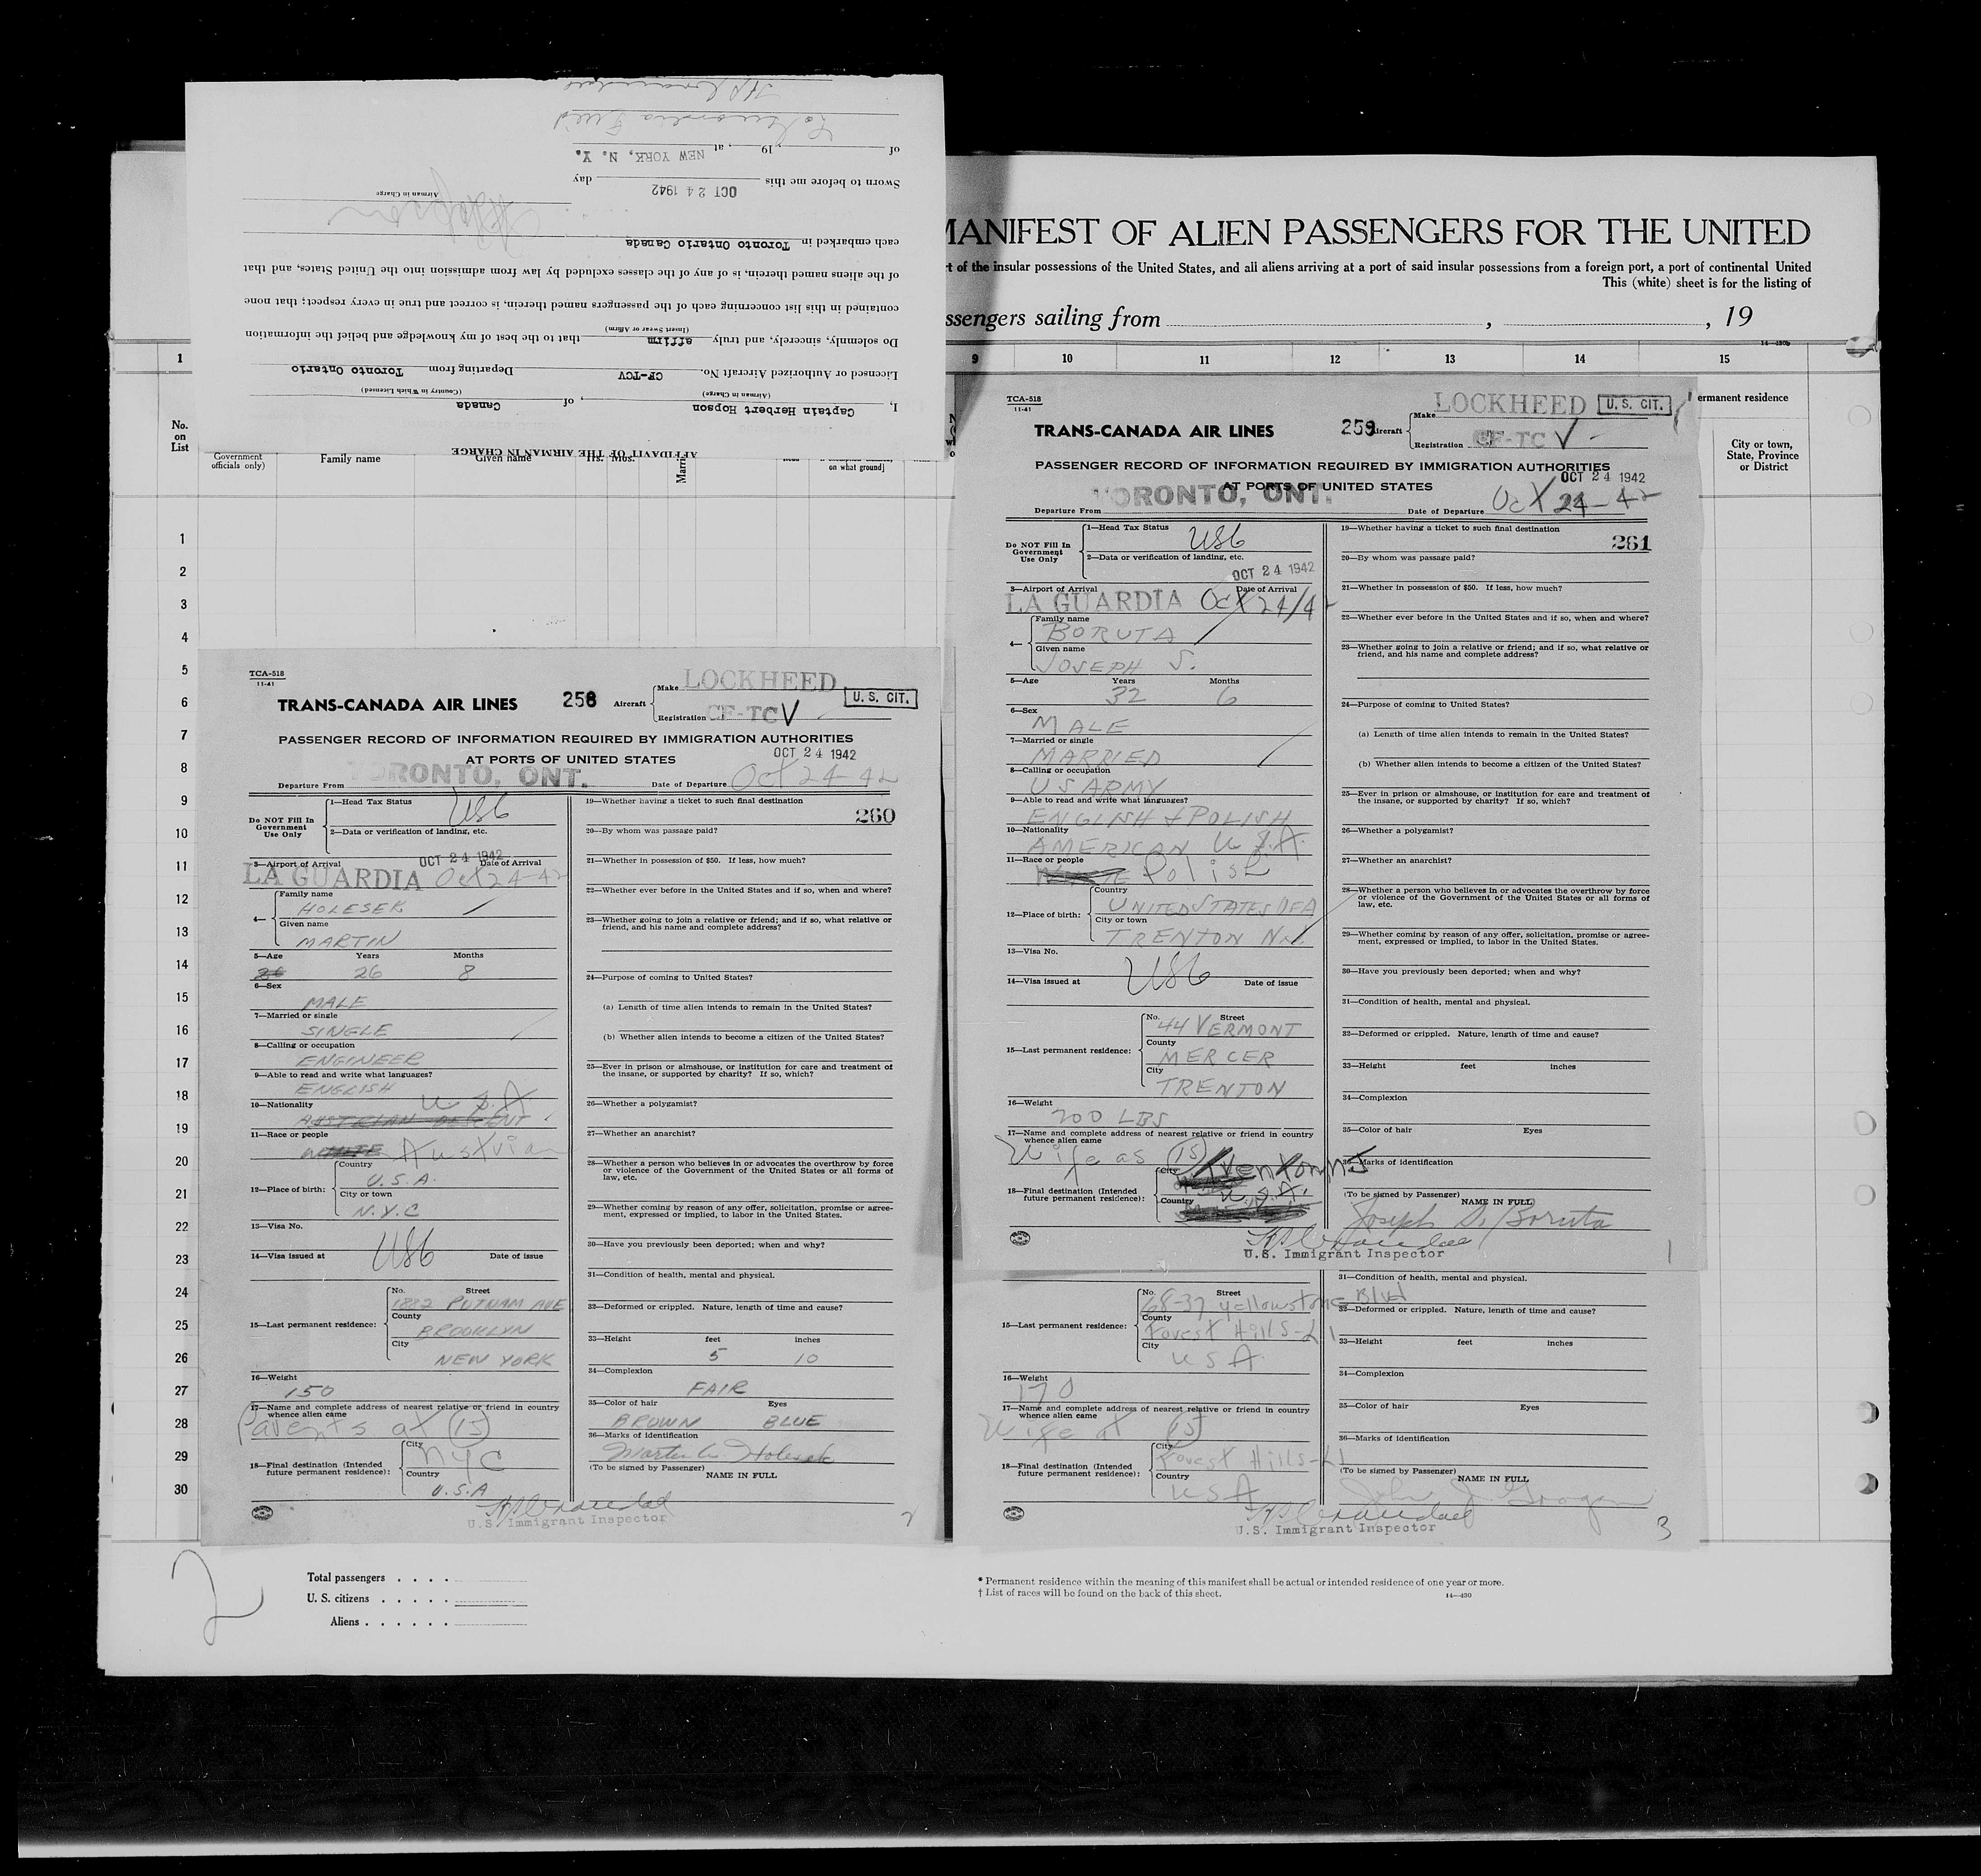 AFFIDAVIT OF THE AIRMAN IN CHARGE
I, Captain Herbert Hopson, of Canada
(Airman in Charge) (Country in Which Licensed)
Licensed or Authorized Aircraft No. CF-TCV Departing from Toronto Ontario
Do solemnly, sincerely, and truly affirm that to the best of my knowledge and belief the information
(Insert Swear or Affirm)
contained in this list concerning each of the passengers named therein, is correct and true in every respect; that none
of the aliens named therein, is of any of the classes excluded by law from admission into the United States, and that
each embarked in Toronto Ontario Canada
Airman in Charge
Sworn to before me this OCT 24 1942 day
of , 19 , at NEW YORK, N. Y.
MANIFEST OF ALIEN PASSENGERS FOR THE UNITED
rt of the insular possessions of the United States, and all aliens arriving at a port of said insular possessions from a foreign port, a port of continental United
This (white) sheet is for the listing of
ssengers sailing from , , 19
14—430b
1 9 10 11 12 13 14 15
No. on List
Government officials only)
Family name
Given name
Yrs. Mos.
on what ground]
ermanent residence
City or town, State, Province or District
1
2
3
4
5
6
7
8
9
10
11
12
13
14
15
16
17
18
19
20
21
22
23
24
25
26
27
28
29
30
TCA-518
11-41
TRANS-CANADA AIR LINES 258 Aircraft
Make LOCKHEED
Registration CF-TCV
U. S. CIT.
PASSENGER RECORD OF INFORMATION REQUIRED BY IMMIGRATION AUTHORITIES
AT PORTS OF UNITED STATES
OCT 24 1942
Departure From TORONTO, ONT. Date of Departure Oct 24-42
Do NOT Fill In Government Use Only
1—Head Tax Status USC
2—Data or verification of landing, etc.
OCT 24 1942
3—Airport of Arrival Date of Arrival
LA GUARDIA Oct 24-42
4— Family name
HOLESEK
Given name
MARTIN
5—Age Years Months
26 8
6—Sex
MALE
7—Married or single
SINGLE
8—Calling or occupation
ENGINEER
9—Able to read and write what languages?
ENGLISH
10—Nationality U.S.A
AUSTRIAN DESCENT
11—Race or people
WHITE Austrian
12—Place of birth: Country
U.S.A.
City or town
N.Y.C
13—Visa No.
14—Visa issued at USC Date of issue
15—Last permanent residence: No. Street
1882 PUTNAM AVE
County
BROOKLYN
City
NEW YORK
16—Weight
150
17—Name and complete address of nearest relative or friend in country whence alien came
Parents at (15)
18—Final destination (Intended future permanent residence): City
NYC
Country
U.S.A
U.S. Immigrant Inspector
19—Whether having a ticket to such final destination
260
20—By whom was passage paid?
21—Whether in possession of $50. If less, how much?
22—Whether ever before in the United States and if so, when and where?
23—Whether going to join a relative or friend; and if so, what relative or friend, and his name and complete address?
24—Purpose of coming to United States?
(a) Length of time alien intends to remain in the United States?
(b) Whether alien intends to become a citizen of the United States?
25—Ever in prison or almshouse, or institution for care and treatment of the insane, or supported by charity? If so, which?
26—Whether a polygamist?
27—Whether an anarchist?
28—Whether a person who believes in or advocates the overthrow by force or violence of the Government of the United States or all forms of law, etc.
29—Whether coming by reason of any offer, solicitation, promise or agreement, expressed or implied, to labor in the United States.
30—Have you previously been deported; when and why?
31—Condition of health, mental and physical.
32—Deformed or crippled. Nature, length of time and cause?
33—Height feet inches
5 10
34—Complexion
FAIR
35—Color of hair Eyes
BROWN BLUE
36—Marks of identification
(To be signed by Passenger) NAME IN FULL
2
TCA-518
11-41
TRANS-CANADA AIR LINES 259 Aircraft
Make LOCKHEED
Registration CF-TCV
U. S. CIT.
PASSENGER RECORD OF INFORMATION REQUIRED BY IMMIGRATION AUTHORITIES
AT PORTS OF UNITED STATES
OCT 24 1942
Departure From TORONTO, ONT. Date of Departure Oct 24-42
Do NOT Fill In Government Use Only
1—Head Tax Status USC
2—Data or verification of landing, etc.
OCT 24 1942
3—Airport of Arrival Date of Arrival
LA GUARDIA Oct 24/42
4— Family name
BORUTA
Given name
JOSEPH S.
5—Age Years Months
32 6
6—Sex
MALE
7—Married or single
MARRIED
8—Calling or occupation
US ARMY
9—Able to read and write what languages?
ENGLISH & POLISH
10—Nationality
AMERICAN U.S.A.
11—Race or people
WHITE Polish
12—Place of birth: Country
UNITED STATES OF A
City or town
TRENTON N.J.
13—Visa No.
14—Visa issued at USC Date of issue
15—Last permanent residence: No. Street
44 VERMONT
County
MERCER
City
TRENTON
16—Weight
200 LBS
17—Name and complete address of nearest relative or friend in country whence alien came
Wife as (15)
18—Final destination (Intended future permanent residence): City
Trenton NJ
Country
U.S.A.
U.S. Immigrant Inspector
19—Whether having a ticket to such final destination
261
20—By whom was passage paid?
21—Whether in possession of $50. If less, how much?
22—Whether ever before in the United States and if so, when and where?
23—Whether going to join a relative or friend; and if so, what relative or friend, and his name and complete address?
24—Purpose of coming to United States?
(a) Length of time alien intends to remain in the United States?
(b) Whether alien intends to become a citizen of the United States?
25—Ever in prison or almshouse, or institution for care and treatment of the insane, or supported by charity? If so, which?
26—Whether a polygamist?
27—Whether an anarchist?
28—Whether a person who believes in or advocates the overthrow by force or violence of the Government of the United States or all forms of law, etc.
29—Whether coming by reason of any offer, solicitation, promise or agreement, expressed or implied, to labor in the United States.
30—Have you previously been deported; when and why?
31—Condition of health, mental and physical.
32—Deformed or crippled. Nature, length of time and cause?
33—Height feet inches
34—Complexion
35—Color of hair Eyes
36—Marks of identification
(To be signed by Passenger) NAME IN FULL
Joseph S. Boruta
1
15—Last permanent residence: No. Street
68-37 Yellowstone Blvd
County
Forest Hills-LI
City
USA
16—Weight
170
17—Name and complete address of nearest relative or friend in country whence alien came
Wife at (15)
18—Final destination (Intended future permanent residence): City
Forest Hills-LI
Country
USA
U.S. Immigrant Inspector
31—Condition of health, mental and physical.
32—Deformed or crippled. Nature, length of time and cause?
33—Height feet inches
34—Complexion
35—Color of hair Eyes
36—Marks of identification
(To be signed by Passenger) NAME IN FULL
John J. Grogan
3
2
Total passengers . . . .
U. S. citizens . . . . .
Aliens . . . . . .
* Permanent residence within the meaning of this manifest shall be actual or intended residence of one year or more.
† List of races will be found on the back of this sheet. 14—430